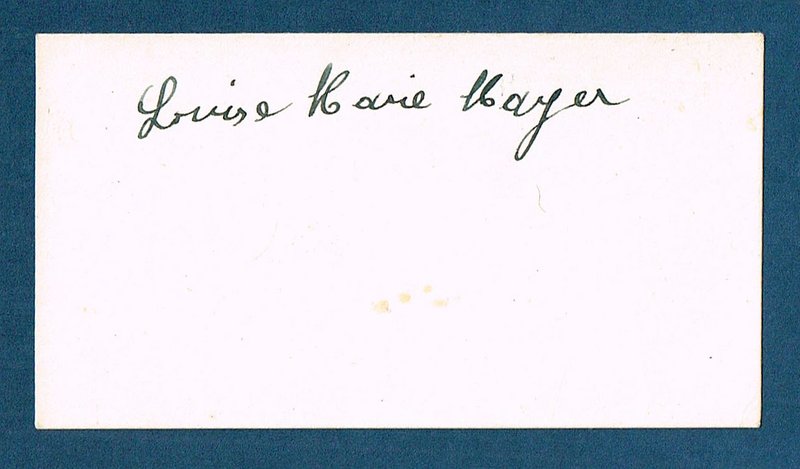 Louise Marie Mayer